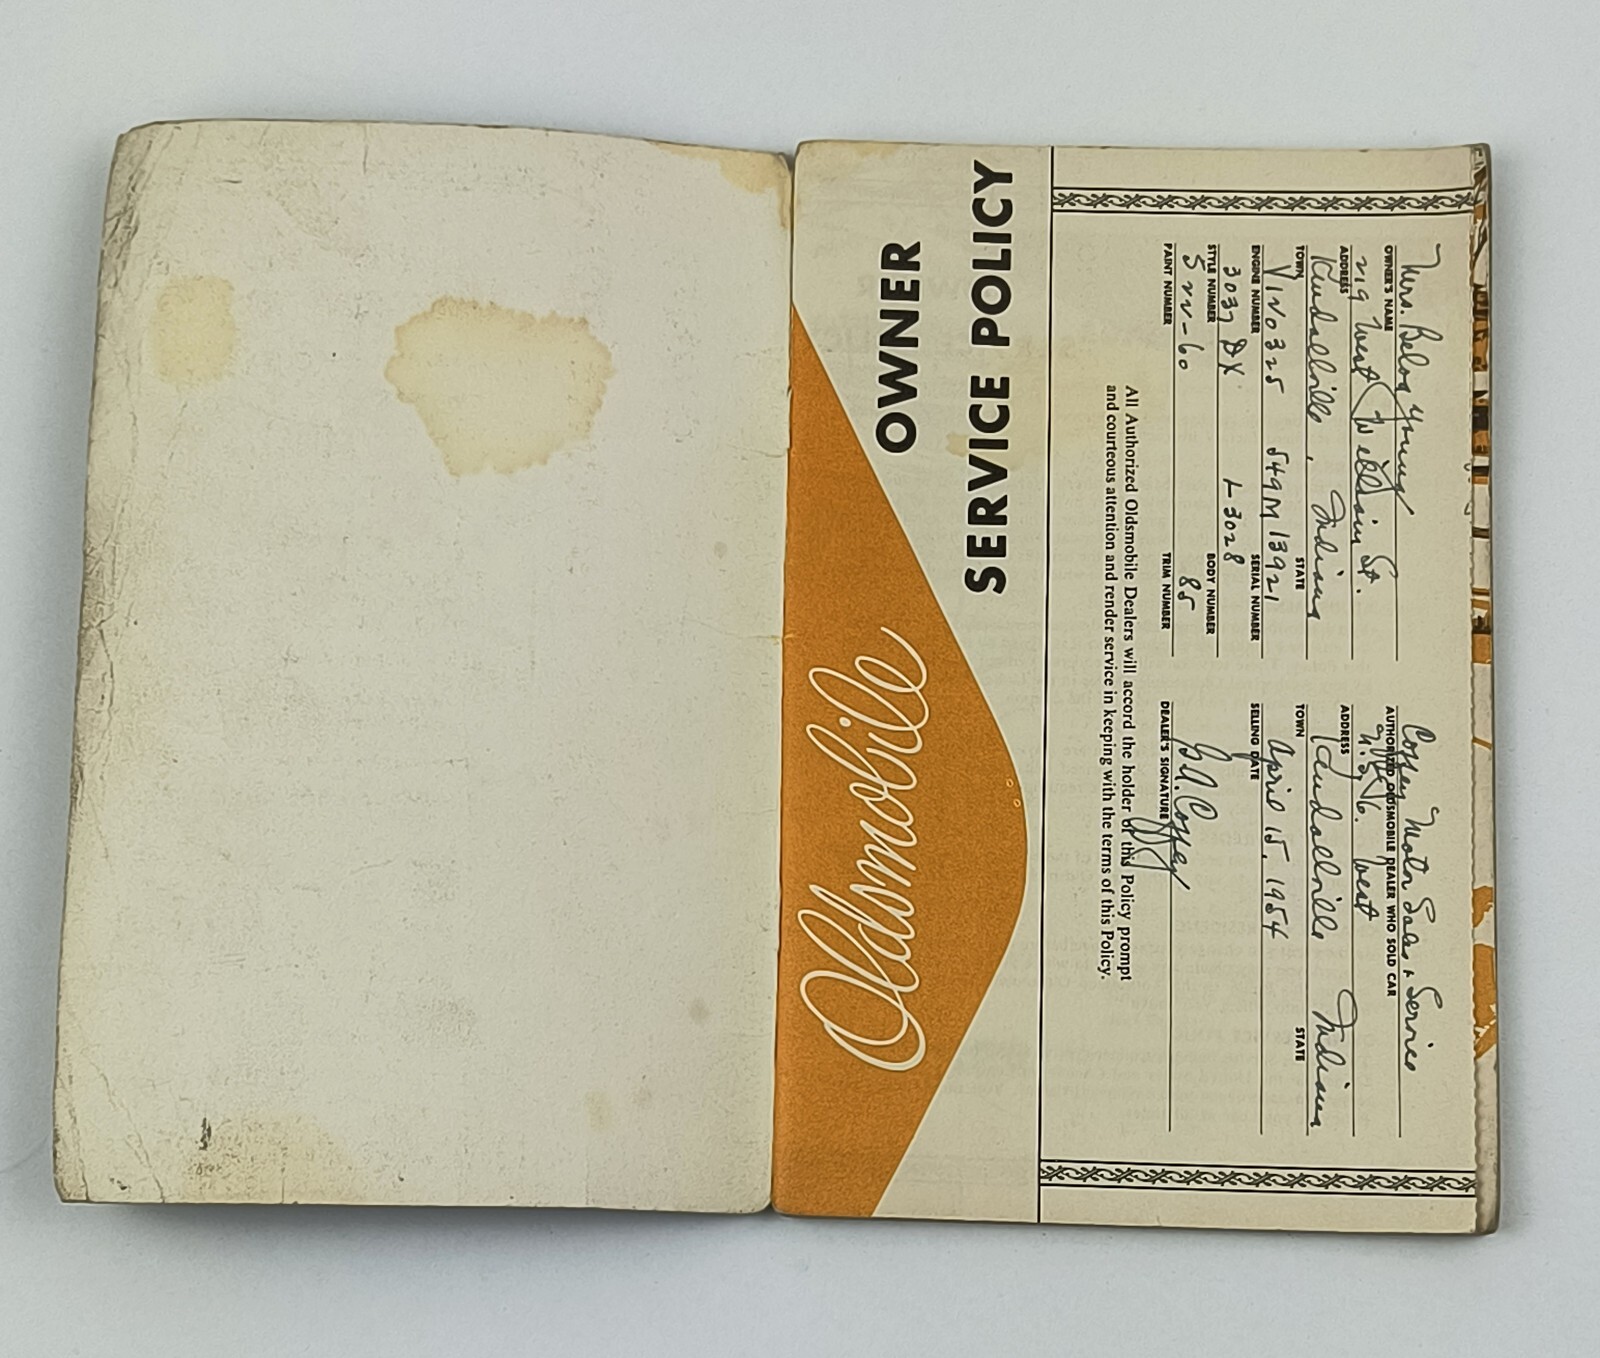 OWNER
SERVICE POLICY
Oldsmobile
Mrs. Belva Young
OWNER'S NAME
219 West William St.
ADDRESS
Kendallville, Indiana
TOWN STATE
V120325 549M 13921
ENGINE NUMBER SERIAL NUMBER
3037 DX L-3028
STYLE NUMBER BODY NUMBER
522-60 85
PAINT NUMBER TRIM NUMBER
Coffey Motor Sales + Service
AUTHORIZED OLDSMOBILE DEALER WHO SOLD CAR
U.S. 6. West
ADDRESS
Kendallville Indiana
TOWN STATE
April 15, 1954
SELLING DATE
Coffey
DEALER'S SIGNATURE
All Authorized Oldsmobile Dealers will accord the holder of this Policy prompt
and courteous attention and render service in keeping with the terms of this Policy.